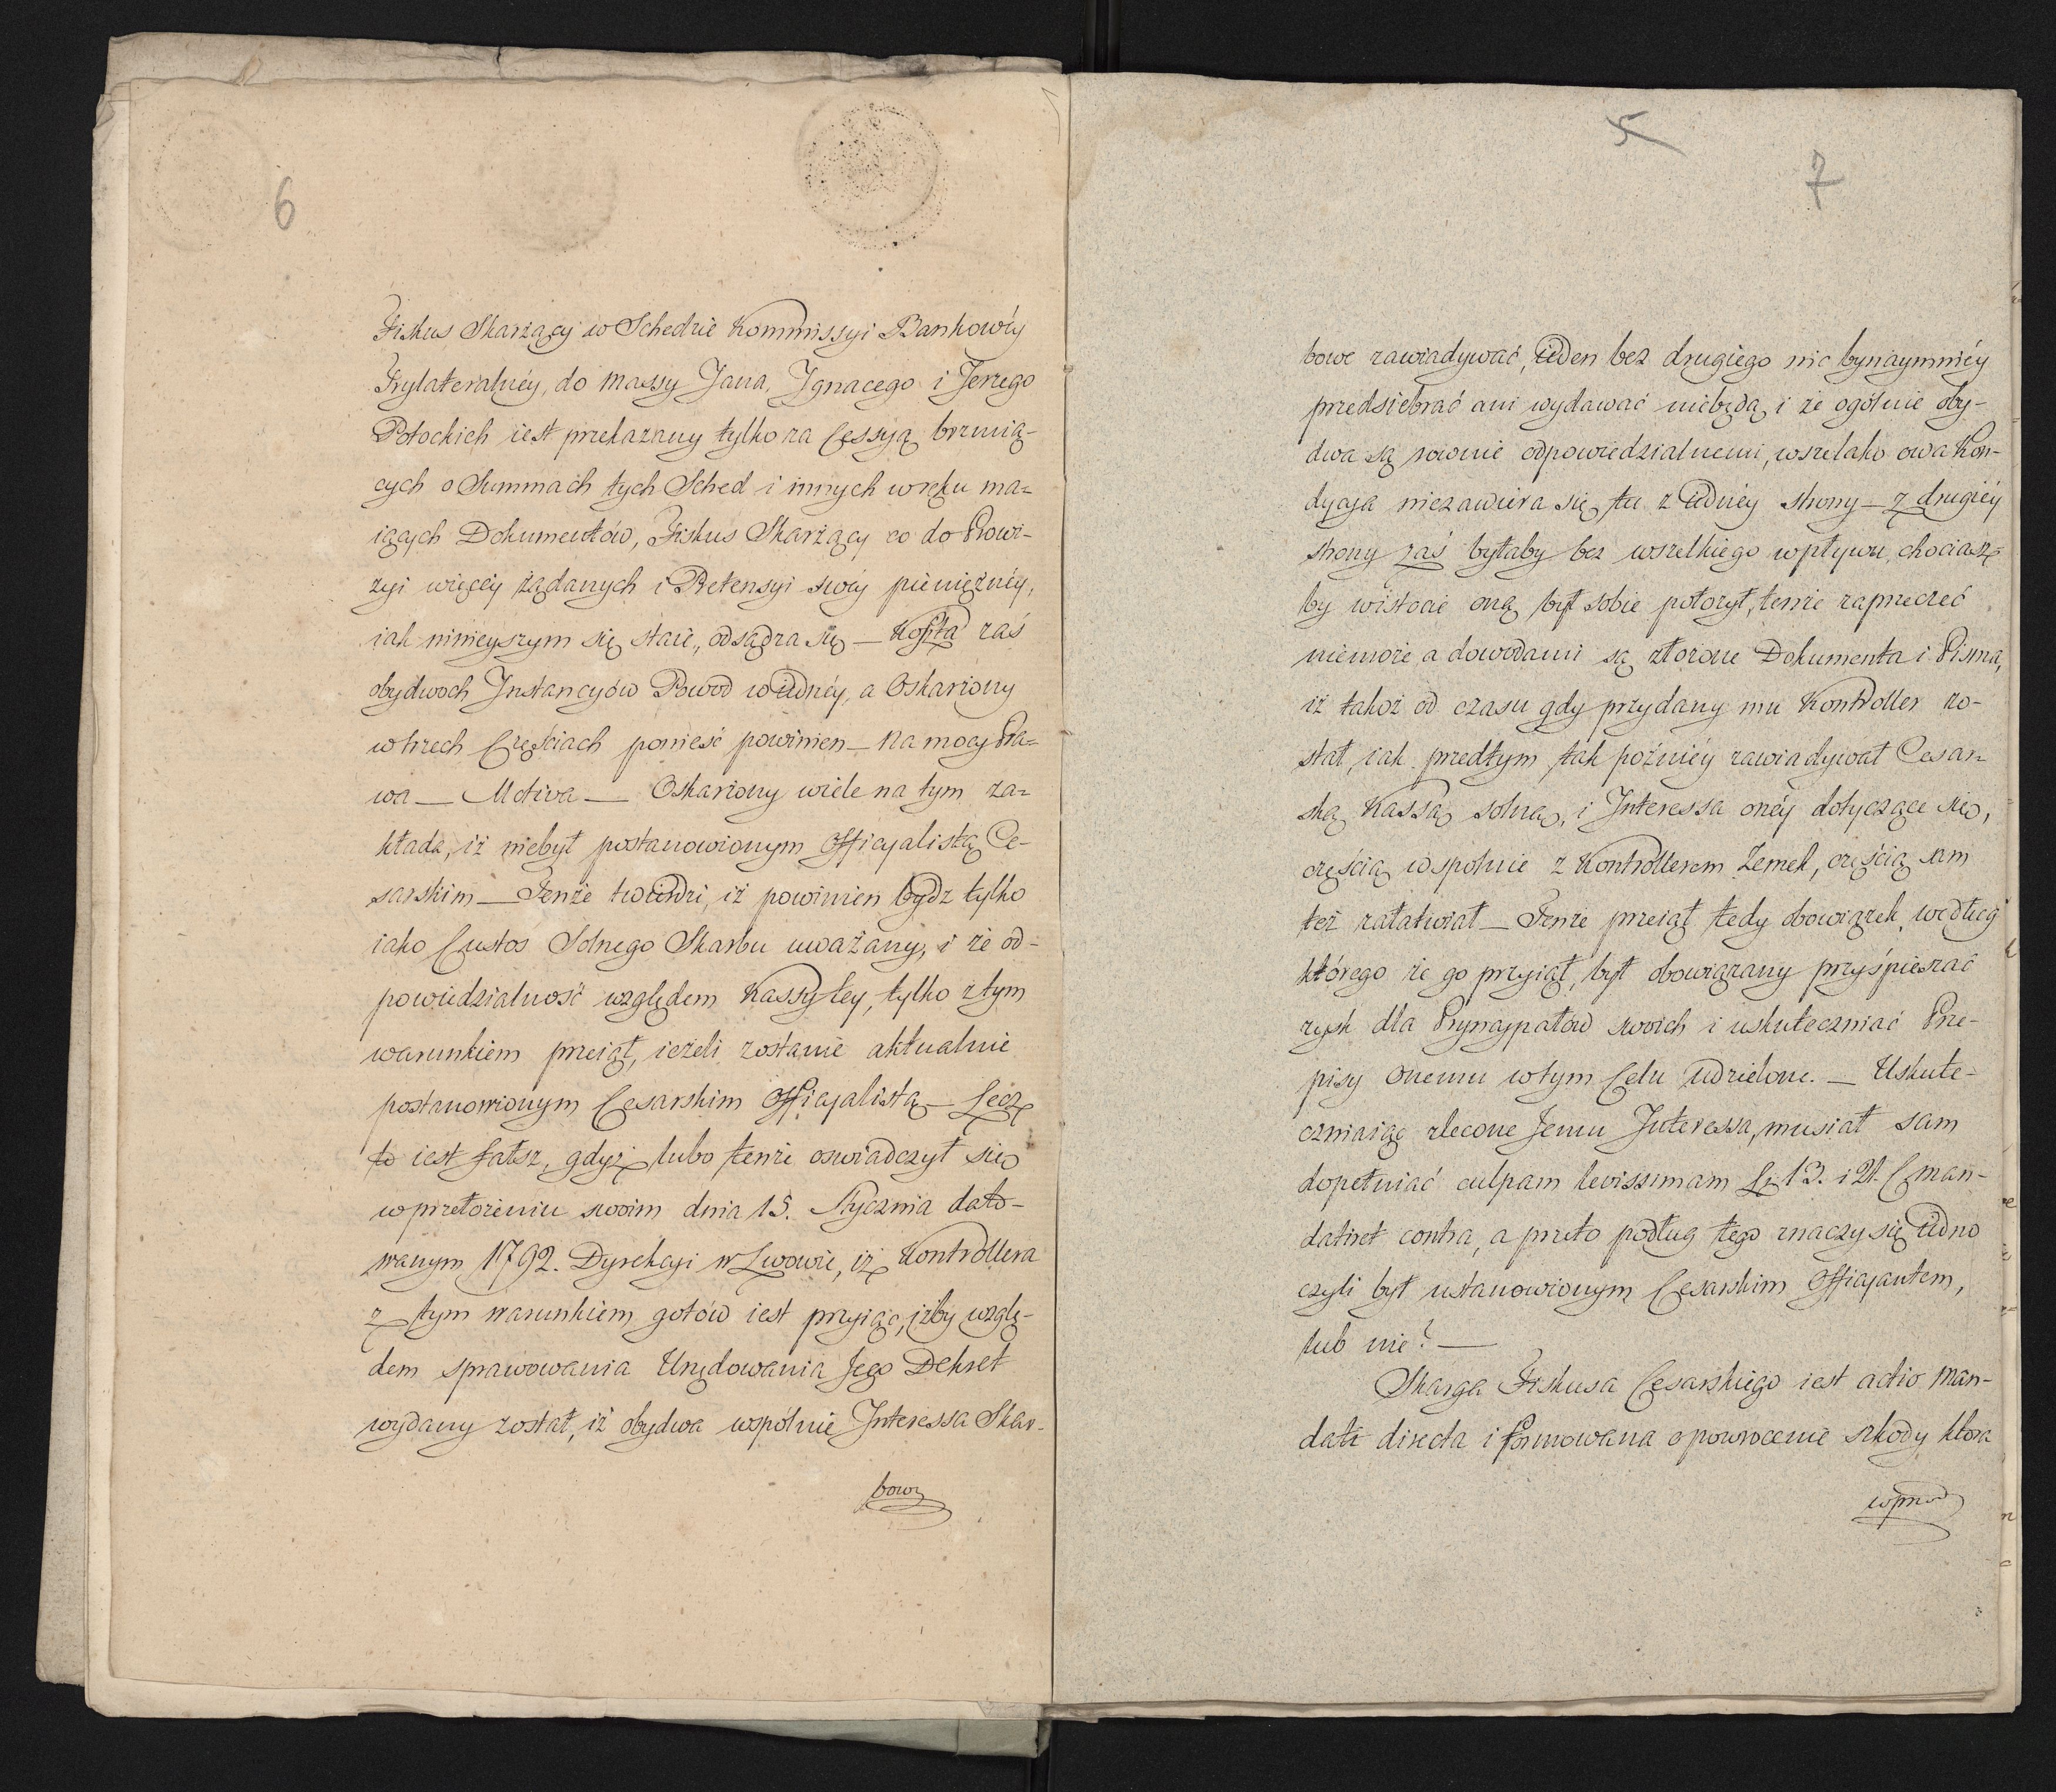 6
Fiskus Skarżący w Schedzie Kommissyi Bankowéy
Trylateralnéy, do massy Jana, Jgnacego i Jerzego
Potockich iest przekazany tylko za Cessyą brzmią-
cych o Summach tych Sched i innych wręku ma-
iących Dokumentów, Fiskus Skarżący co do Prowi-
zyi więcéy żądanych i Pretensyi swéy pieniężnéy,
iak ninieyszym się staie, odsądza się — Koszta zaś
obydwoch Jnstancyów Powod w iednéy, a Oskarżony
w trzech Częściach ponieść powinien — Na mocy Pra-
wa — Motiva — Oskarżony wiele na tym za-
kłada, iż niebył postanowionym Officyalistą Ce-
sarskim — Tenże twierdzi, iż powinien bydz tylko
iako Custos Solnego Skarbu uważany, i że od-
powiedzialność względem Kassy tey, tylko z tym
warunkiem przeiął, ieżeli zostanie aktualnie
postanowionym Cesarskim Officyalistą — Lecz
to iest fałsz, gdyż lubo tenże oswiadczył się
w przełożeniu swoim dnia 15. Stycznia dato-
wanym 1792. Dyrekcyi w Lwowie, iż Kontrollera
z tym warunkiem gotów iest przyiąc, iżby wzglę-
dem sprawowania Urzędowania Jego Dekret
wydany został, iż obydwa wspólnie Jnteressa Skar-
bowe
5
7
bowe zawiadywać, ieden bez drugiego nic bynaymniéy
przedsiebrać ani wydawać niebędą, i że ogólnie oby-
dwa są rownie odpowiedzialnemi, wszelako owa Kon-
dycya niezawiera się tu z iednéy strony — z drugiéy
strony zaś byłaby bez wszelkiego wpływu, chociasz-
by wistocie oną był sobie położył, tenże zaprzeczeć
niemoże a dowodami są złożone Dokumenta i Pisma,
iż takoż od czasu gdy przydany mu Kontroller zo-
stał, iak przedtym tak poźniéy zawiadywał Cesar-
ską Kassą solną, i Jnteressa onéy dotyczące się,
częścią wspolnie z Kontrollerem Zemek, częścią sam
też załatwiał — Tenże przeiął tedy obowiązek, według
którego że go przyiął, był obowiązany przyśpieszać
zysk dla Pryncypałów swoich i uskuteczniać Prze-
pisy onemu w tym Celu udzielone. — Uskute-
czniaiąc zlecone Jemu Jnteressa, musiał sam
dopełniać culpam levissimam L. 13. i 21. C man-
dati et contra, a przeto podług tego znaczy się iedno
czyli był ustanowionym Cesarskim Officyantem,
lub nie? —
Skarga Fiskusa Cesarskiego iest actio Man-
dati directa i formowana o powrocenie szkody ktora